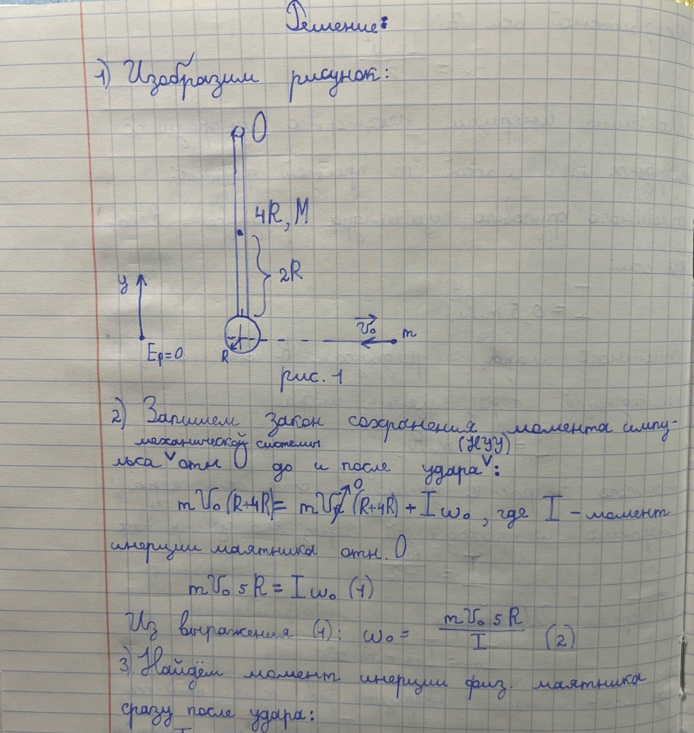 Решение:
1) Изобразим рисунок:
O
4R, M
2R
y
Eр=0
R
v₀
m
рис. 1
2) Запишем закон сохранения момента импу-
механической системы (НУУ)
льса ᵛ отн. O до и после удара ᵛ:
mV₀(R+4R) = mV (R+4R) + Iω₀, где I - момент
0
инерции маятника отн. O
mV₀ 5R = Iω₀ (1)
Из выражения (1): ω₀ = mV₀ 5R / I (2)
3) Найдём момент инерции физ. маятника
сразу после удара: